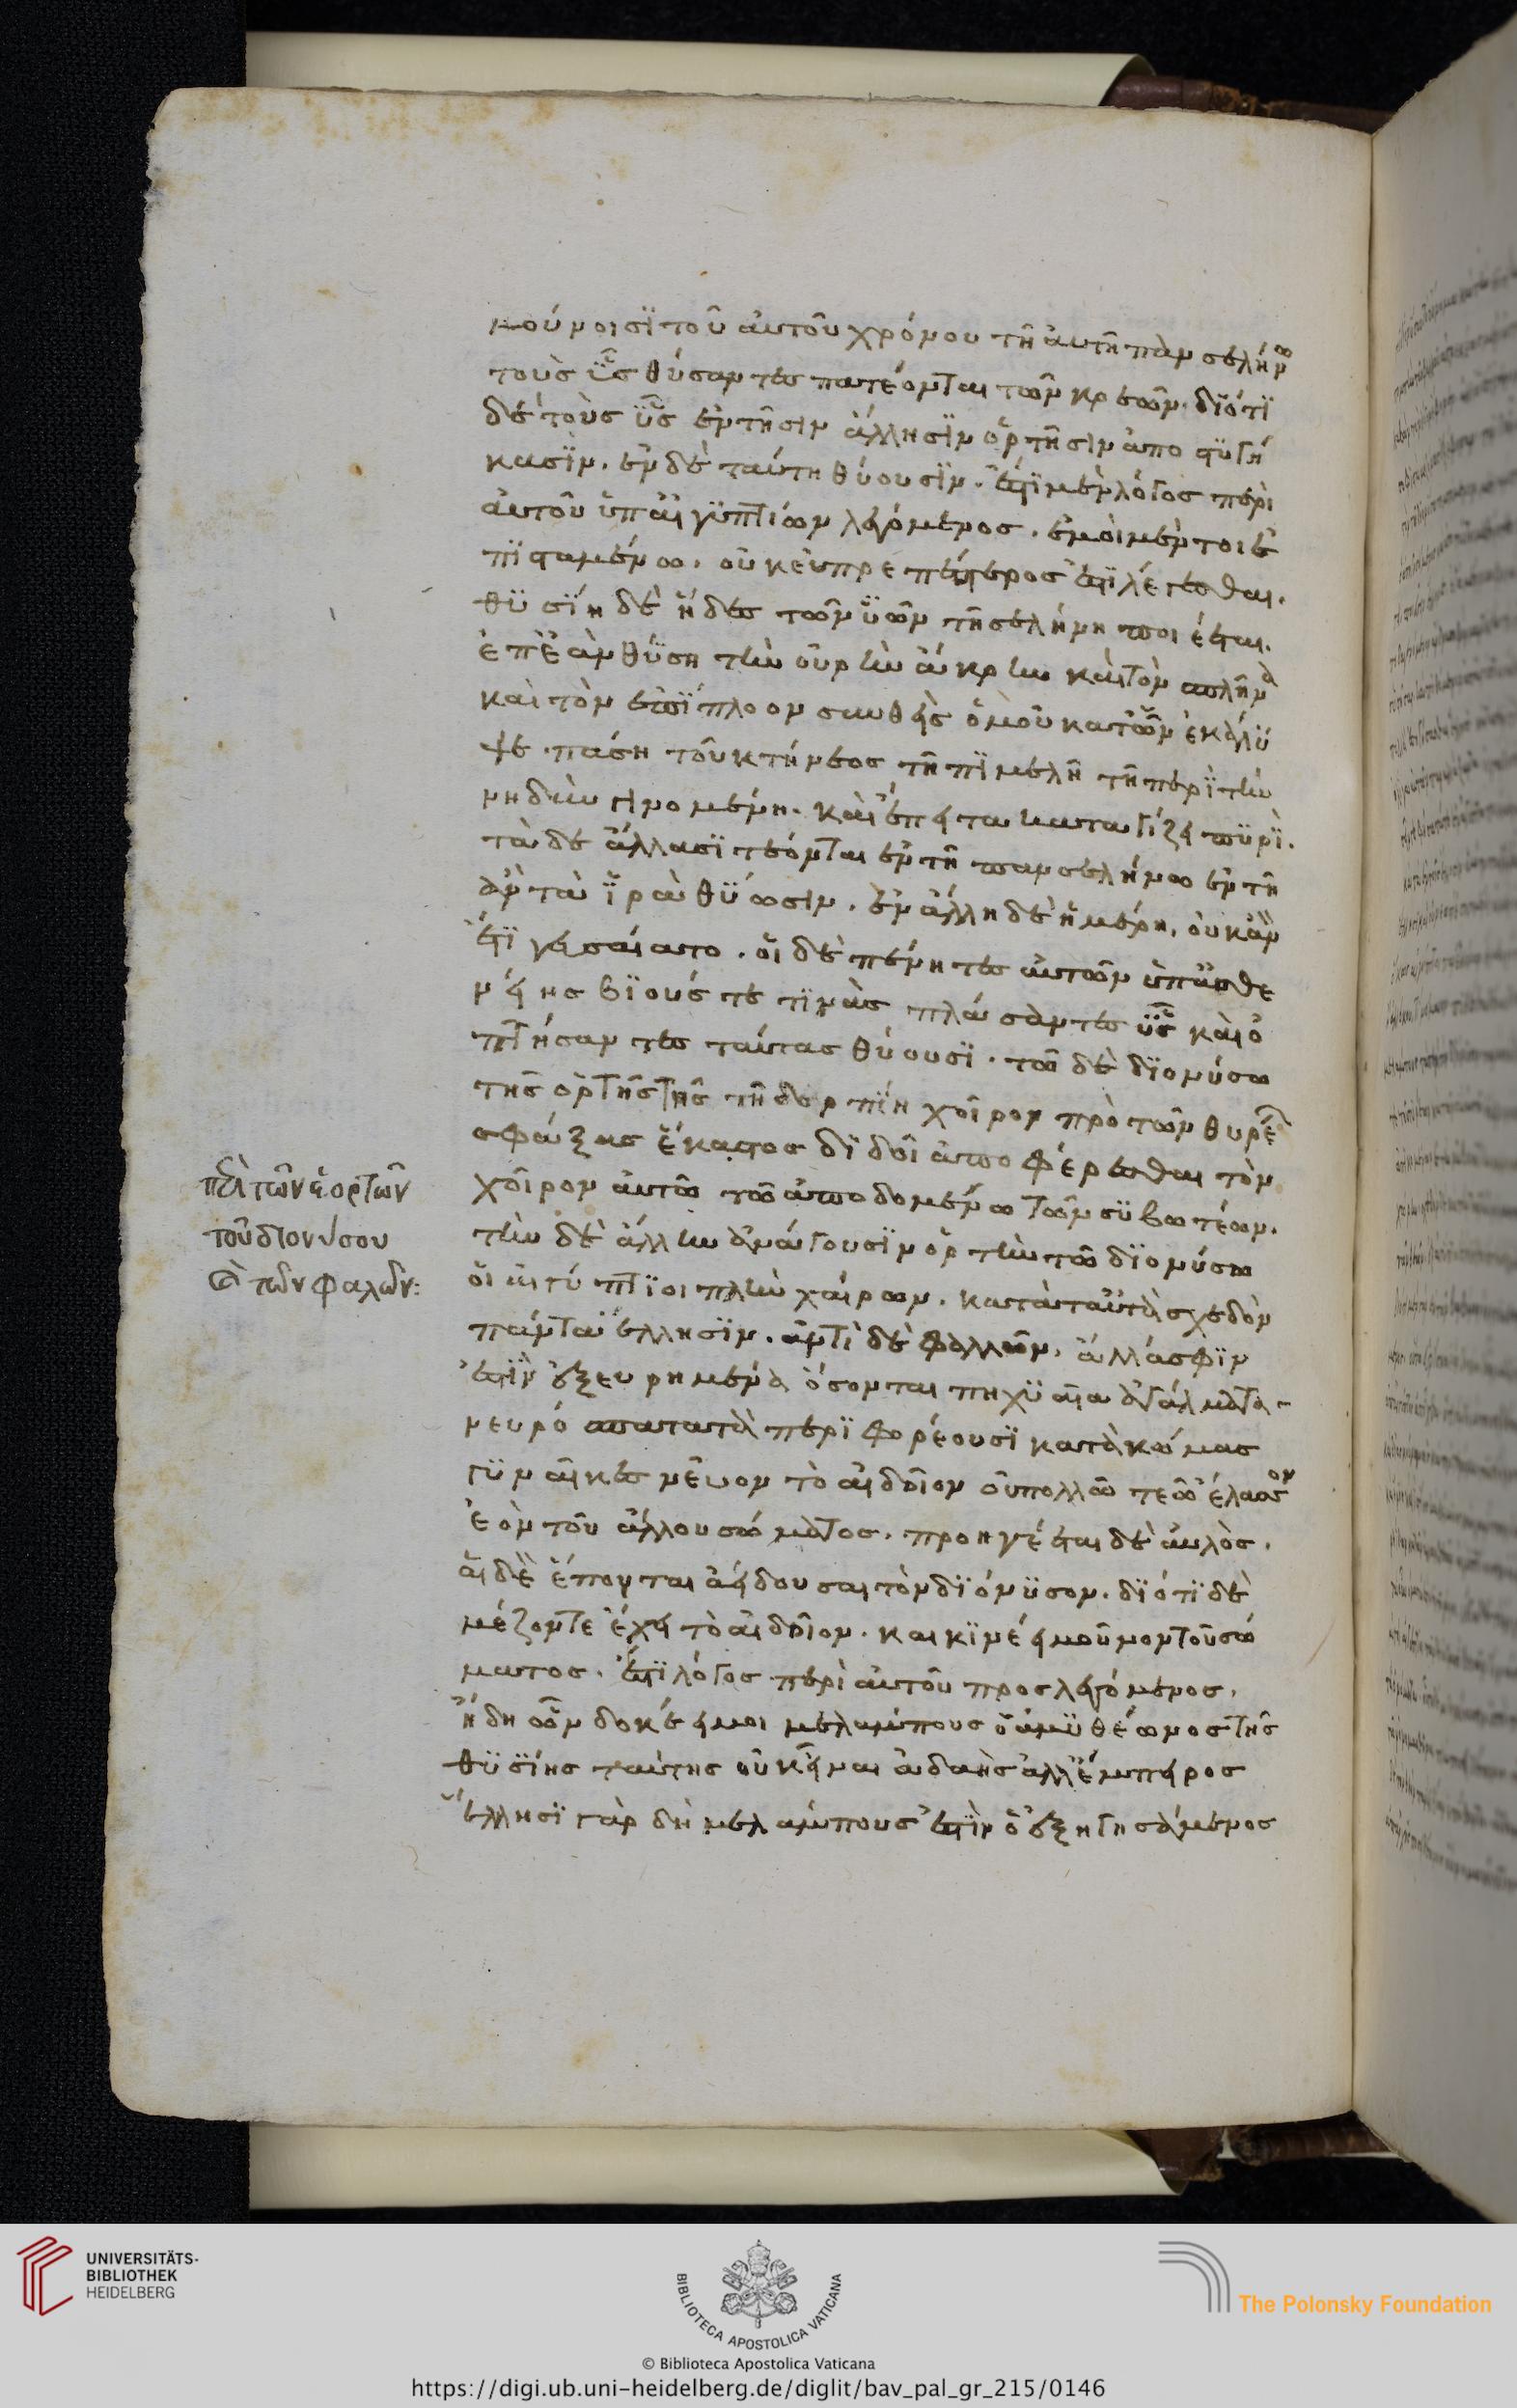 μούνοισι τοῦ αὐτοῦ χρόνου τῇ αὐτῇ πανσελήνω
τοὺς ὗς θύσαντες πατέονται τῶν κρεῶν. διότι
δὲ τοὺς ὗς ἐν τῇσιν ἄλλησιν ὁρτῇσιν ἀπο στυγή
κασιν. ἐν δὲ ταύτη θύουσιν. ἔστι μὲν λόγος περὶ
αὐτοῦ ὑπ αἰγυπτίων λεγόμενος. ἐμοὶ μέντοι ἐ
πισταμένω. οὐκ εὐπρεπέστερος ἐστὶ λέγεσθαι.
θυσίη δὲ ἥδε τῶν ὑῶν τῇ σελήνη ποιέεται.
ἐπεὰν θύση τὴν οὐρὴν ἄκρην καὶ τὸν σπλῆνα
καὶ τὸν ἐπίπλοον συνθεὶς ὁμοῦ κατῶν ἐκάλυ
ψε πάση τοῦ κτήνεος τῇ πιμελῇ τῇ περὶ τὴν
νηδὺν γινομένη. καὶ ἔπειτα καταγίζει πυρί.
τὰ δὲ ἄλλα σιτέονται ἐν τῇ πανσελήνω ἐν τῇ
ἂν τὰ ἱρὰ θύωσιν. ἐν ἄλλη δὲ ἡμέρη, οὐκ ἂν
ἔτι γευσαίατο. οἱ δὲ πένητες αὐτῶν ὑπ ἀσθε
νείης βίου σταιτίνας πλάσαντες ὗς καὶ ὀ
πτήσαντες ταύτας θύουσι. τῶ δὲ διονύσω
τῆς ὁρτῆς τῇ δορπίη χοῖρον πρὸ τῶν θυρέων
σφάξας ἕκαστος διδοῖ ἀποφέρεσθαι τὸν
χοῖρον αὐτῶ τῶ ἀποδομένω τῶν συβωτέων.
τὴν δὲ ἄλλην ἀνάγουσιν ὁρτὴν τῶ διονύσω
οἱ αἰγύπτιοι πλὴν χοίρων. κατὰ ταὐτὰ σχεδὸν
πάντα ἕλλησιν. ἀντὶ δὲ φαλλῶν, ἄλλά σφιν
ἐστὶν ἐξευρημένα ὅσον ται πηχυαῖα ἀγάλματα
νευρόσπαστα τὰ περιφορέουσι κατὰ κώμας
γυναῖκες νεῦον τὸ αἰδοῖον οὐ πολλῶ τεῶ ἔλασσον
ἐὸν τοῦ ἄλλου σώματος. προηγέεται δὲ αὐλὸς.
αἱ δὲ ἕπονται ἀείδουσαι τὸν διόνυσον. διότι δὲ
μέζον τε ἔχει τὸ αἰδοῖον. καὶ κινέει μοῦνον τοῦ σώ
ματος. ἔστι λόγος περὶ αὐτοῦ προσλεγόμενος.
ἤδη ὦν δοκέει μοι μελάμπους ὁ ἀμυθέωνος τῆς
θυσίης ταύτης οὐκ εἶναι ἀδαὴς ἀλλ ἔμπειρος
ἕλλησι γὰρ δὴ μελάμπους ἐστὶν ὁ ἐξηγησάμενος
περὶ τῶν ἑορτῶν
τοῦ διονύσου
καὶ τῶν φαλῶν:
UNIVERSITÄTS-
BIBLIOTHEK
HEIDELBERG
BIBLIOTECA APOSTOLICA VATICANA
The Polonsky Foundation
© Biblioteca Apostolica Vaticana
https://digi.ub.uni-heidelberg.de/diglit/bav_pal_gr_215/0146